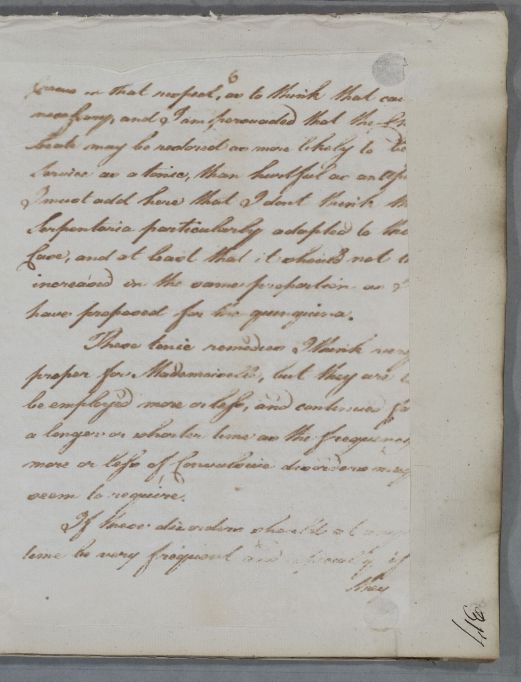 6
in that respect, as to think that
necessary, and I am persuaded that the
may be reckoned as more likely to be
service as a tonic, than hurtful as an
I must add here that I don't think th
Serpentaria particularly adapted to the
Case, and at least that it should not b
increased in the same proportion as I
have proposed for the quinquina.
These tonic remedies I think very
proper for Mademoiselle, but they are t
be employed more or less, and continued fo
a longer or shorter time as the frequency
more or less of Convulsive disorders may
seem to require.
If these disorders should at any
time be very frequent and especially if
they